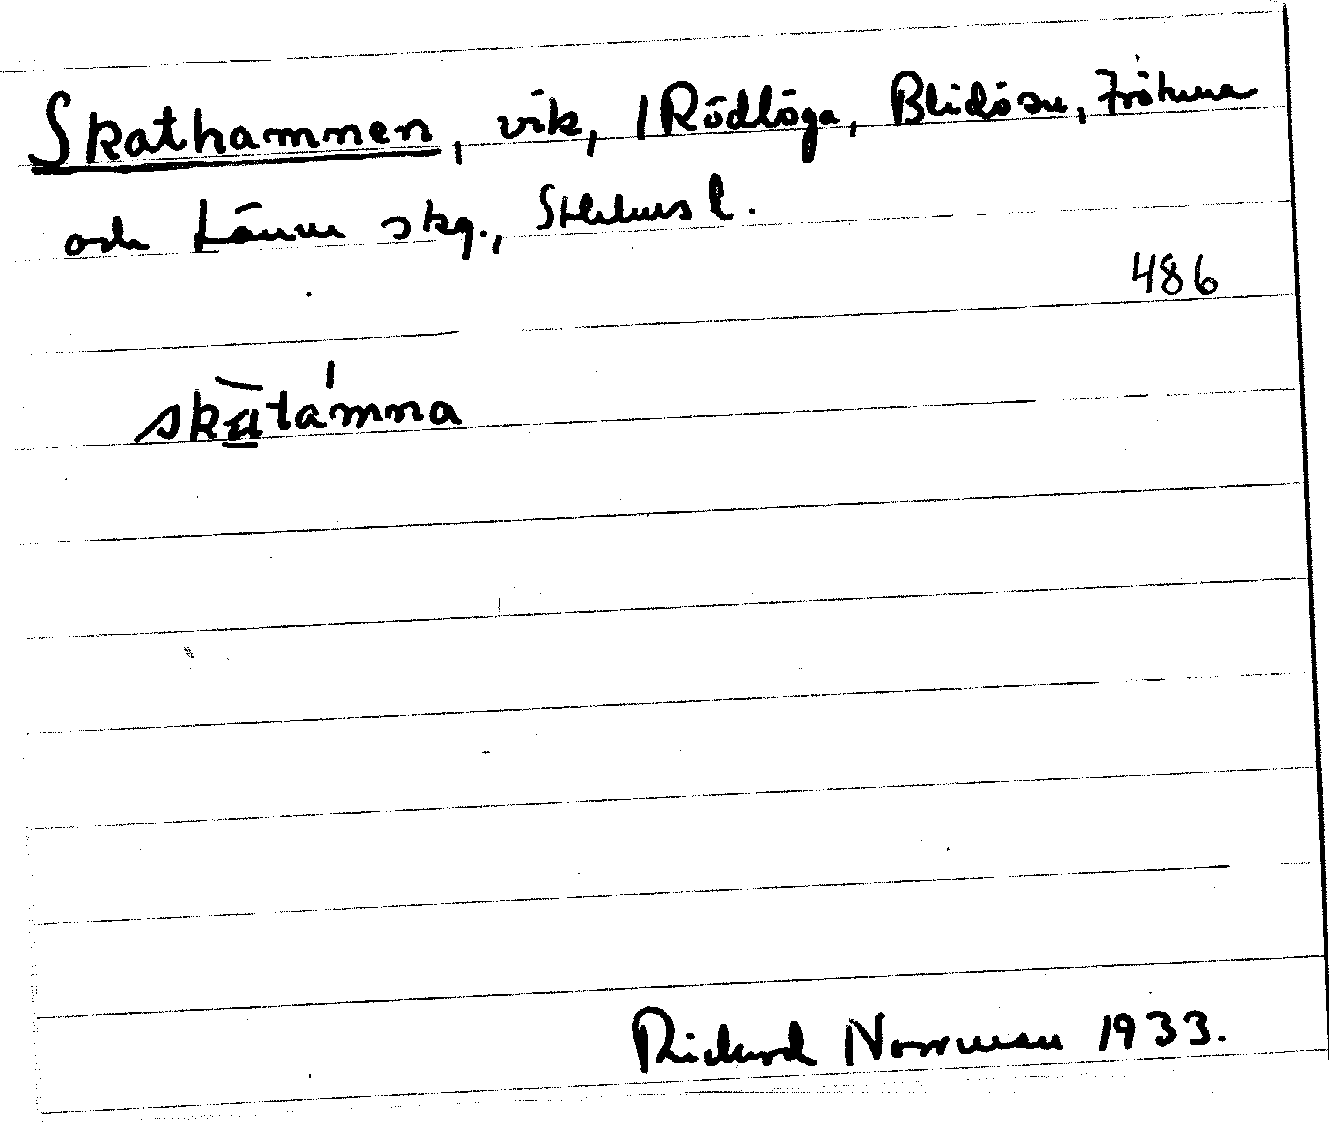 Skathamnen, vik, Rödlöga, Blidö sn, Frötuna
och Länna skg., Sthlms l.
486
skàtámna
Rickard Norrman 1933.